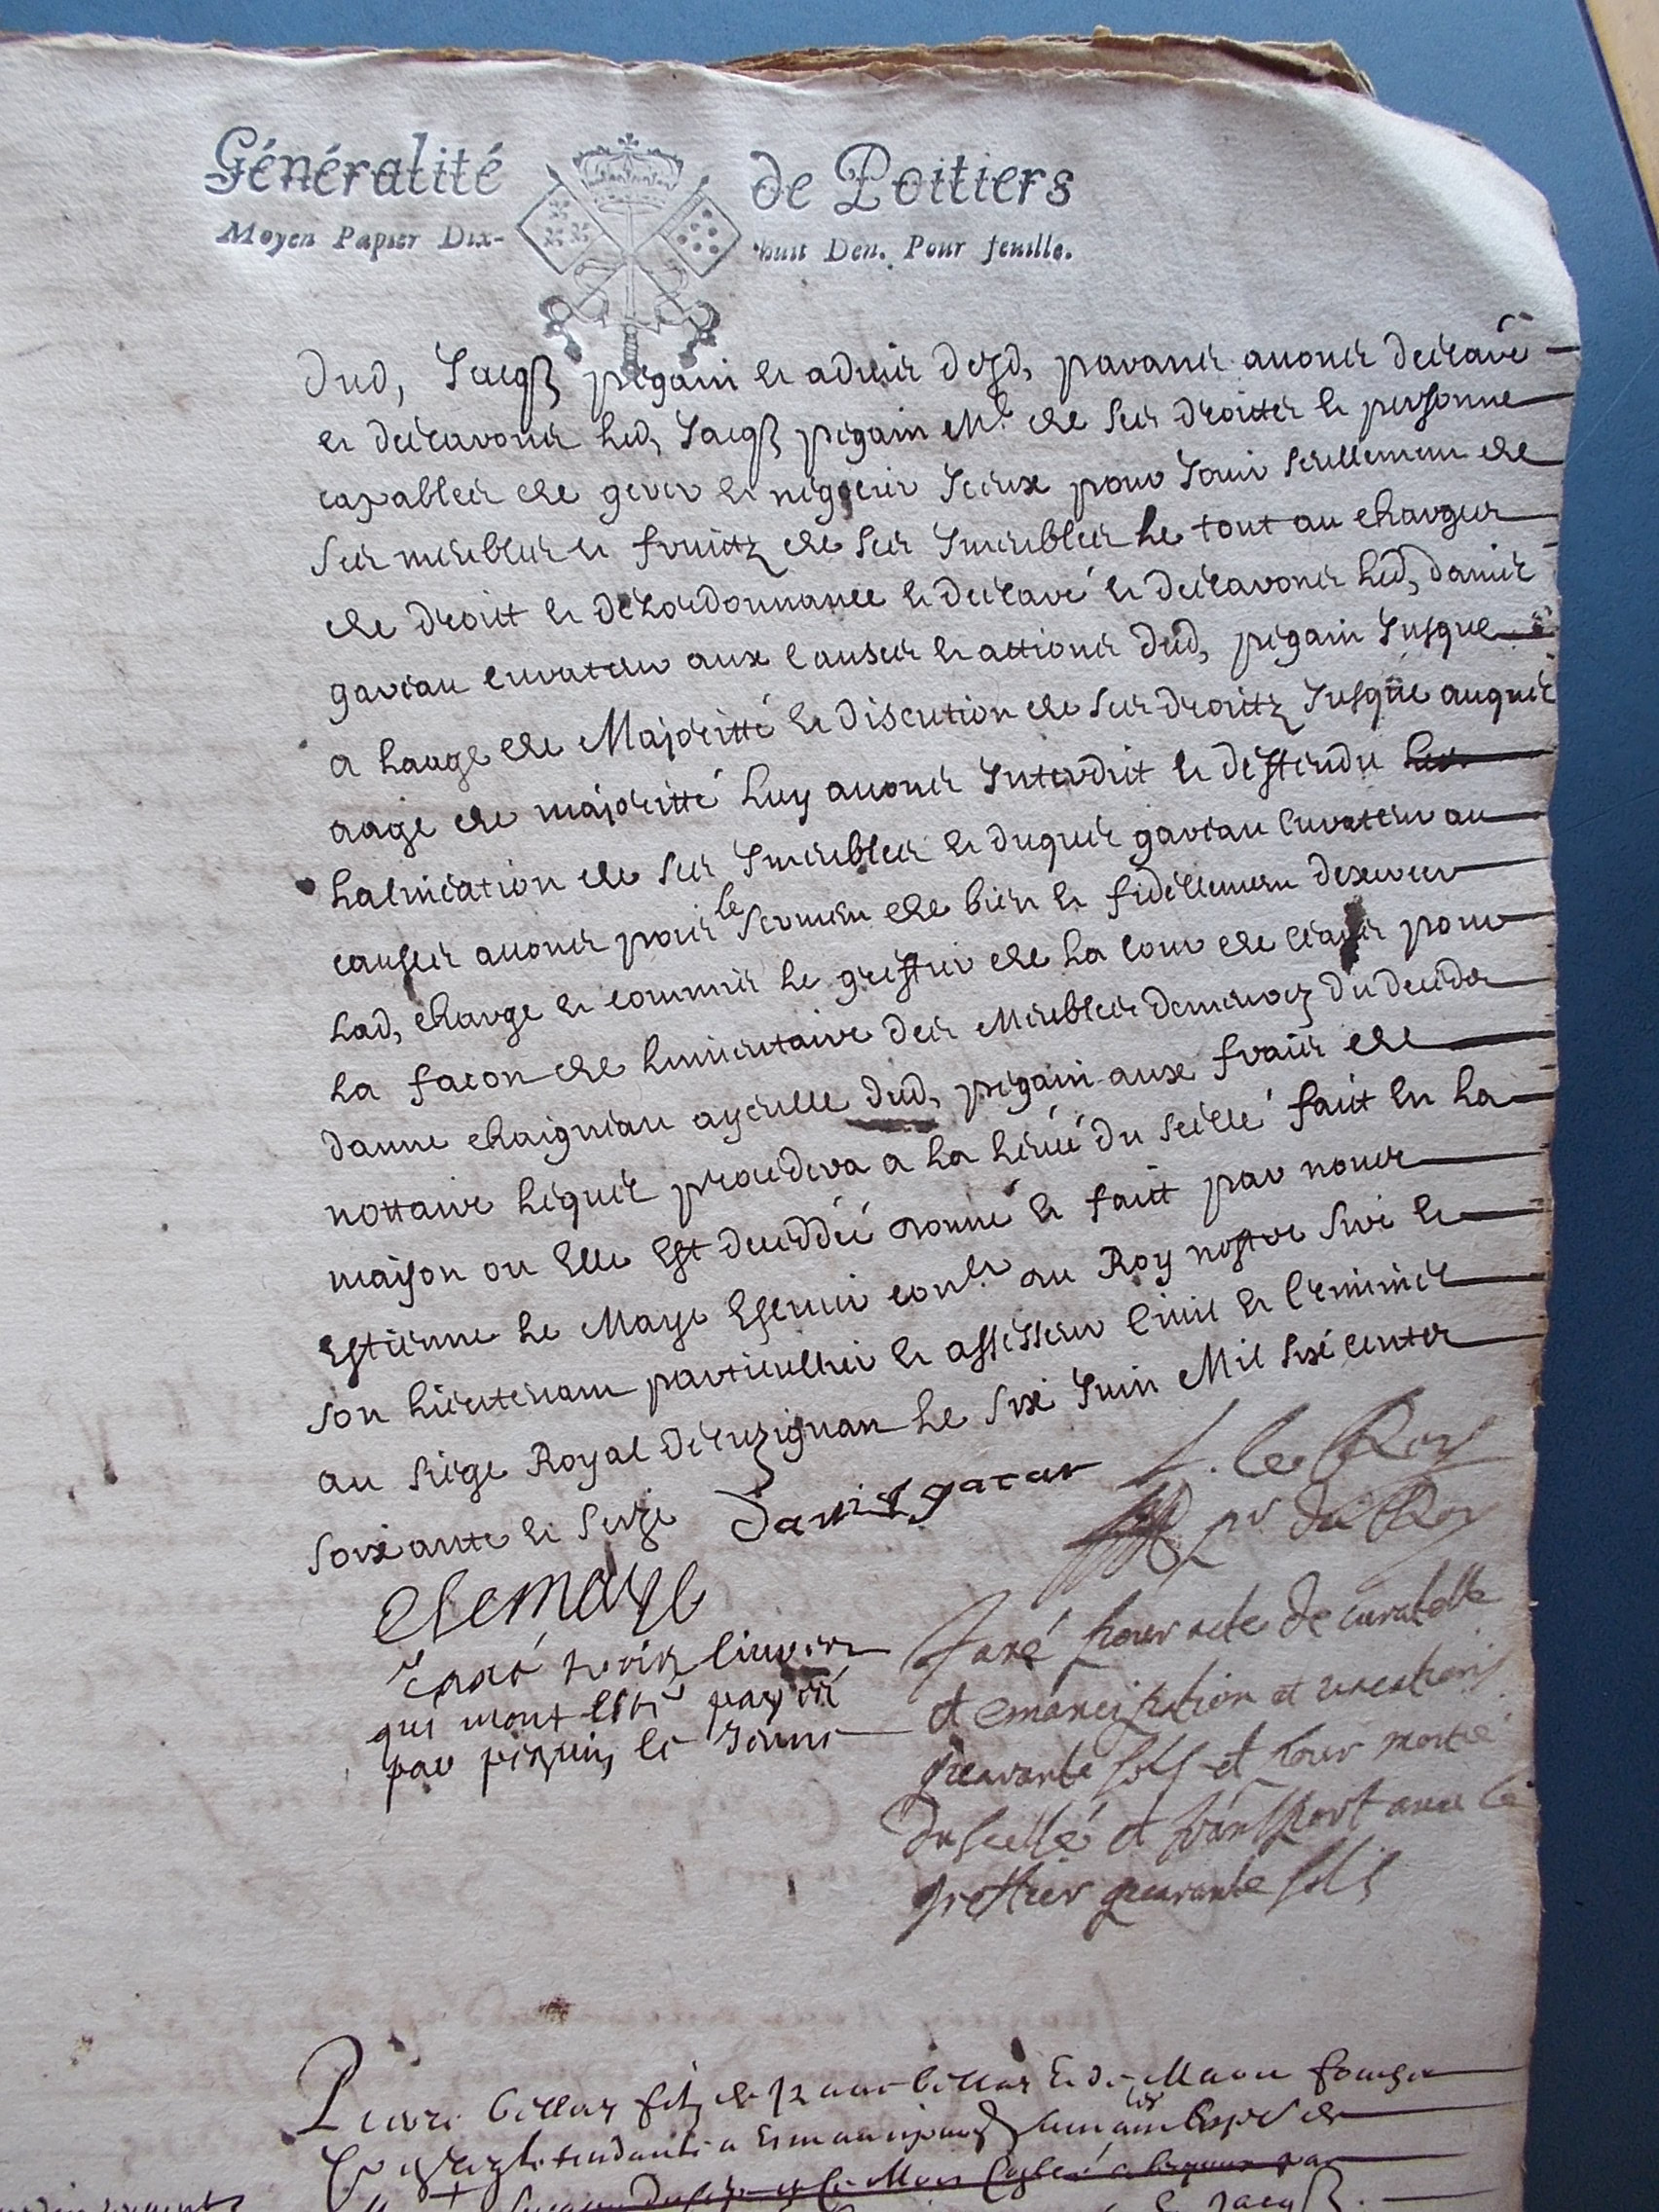 Généralité de Poitiers
Moyen Papier Dix-huit Den. Pour feuille.
dud, Jacq pigain et aduis desd, parans auons declaré
et declarons led, Jacq pigain Me de ses droitts et personne
capables de gerer et negocier Iceux pour Iouir seullement de
ses meubles et fruitz de ses Imeubles le tout au charges
de droit et de lordonnance et declaré et declarons led, daniel
gariau curateur aux causes et actions dud, pigain Jusque
a laage de Majoritté et discution de ses droitz Jusque auquel
aage de majoritté luy auons Interdit et deffendu
lalniation de ses Imeubles et duquel gariau curateur au
causes auons pris le serment de bien et fidellement dexercer
lad, charge et commis le greffier de la cour de pour
la facon de linuentaire des Meubles demeurez du decedz
danne chaigneau ayeulle dud, pigain aux frais de
nottaire lequel procedera a la leuée du scellé fait en la
maison ou Elle Est deceddée donné et fait par nous
Estienne le Maye Escuier conler du Roy nostre sire et
son lieutenant particullier et assesseur ciuil et criminel
au siege Royal de lusignan le six Juin Mil six cents
soixante et seize Daniel garau L. le Roy
pr du Roy
E lemaye
Taxé trois liures
qui mont esté payé
par pigain, le
Taxé pour acte de curatelle
et emancipation et vacations
quarante sols et pour moitié
du scellé et transport auec le
greffier quarante sols
Pierre billar filz de billar Et de Marie
tendante a Emancipaon
Jacq